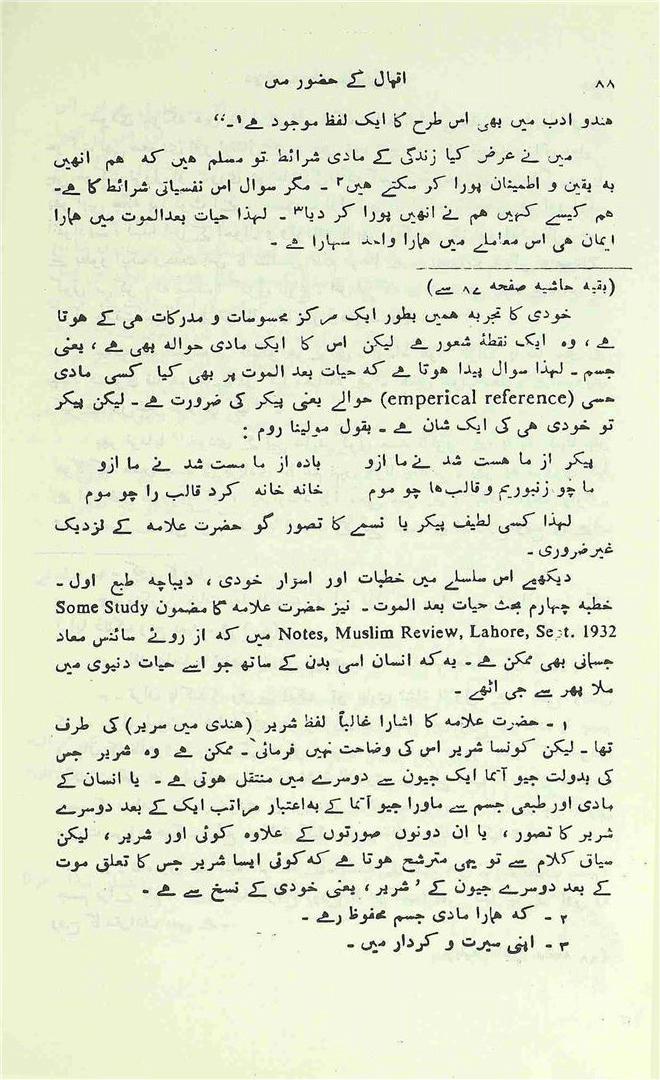 ۸۸
اقبال کے حضور میں
ھندو ادب میں بھی اس طرح کا ایک لفظ موجود ہے۱۔‘‘
میں نے عرض کیا زندگی کے مادی شرائط تو مسلم ھیں کہ ھم انھیں
بہ یقین و اطمینان پورا کر سکتے ھیں۲ ۔ مگر سوال اس نفسیاتی شرائط کا ہے۔
ھم کیسے کہیں ھم نے انھیں پورا کر دیا۳ ۔ لہذا حیات بعدالموت میں ھمارا
ایمان ھی اس معاملے میں ھمارا واحد سہارا ہے ۔
(بقیہ حاشیہ صفحہ ۸۷ سے)
خودی کا تجربہ ھمیں بطور ایک مرکز محسوسات و مدرکات ھی کے ھوتا
ہے ، وہ ایک نقطۂ شعور ہے لیکن اس کا ایک مادی حوالہ بھی ہے ، یعنی
جسم ۔ لہذا سوال پیدا ھوتا ہے کہ حیات بعد الموت پر بھی کیا کسی مادی
حسی (emperical reference) حوالے یعنی پیکر کی ضرورت ہے ۔ لیکن پیکر
تو خودی ھی کی ایک شان ہے ۔ بقول مولینا روم :
پیکر از ما ھست شد نے ما ازو   بادہ از ما مست شد نے ما ازو
ما چو زنبوریم و قالب‌ھا چو موم   خانہ خانہ کرد قالب را چو موم
لہذا کسی لطیف پیکر یا نسمے کا تصور گو حضرت علامہ کے نزدیک
غیرضروری ۔
دیکھیے اس سلسلے میں خطبات اور اسرار خودی ، دیباچہ طبع اول ۔
خطبہ چہارم بحث حیات بعد الموت ۔ نیز حضرت علامہ کا مضمون Some Study
Notes, Muslim Review, Lahore, Sept. 1932 میں کہ از روئے سائنس معاد
جسانی بھی ممکن ہے ۔ یہ کہ انسان اسی بدن کے ساتھ جو اسے حیات دنیوی میں
ملا پھر سے جی اٹھے ۔
۱ ۔ حضرت علامہ کا اشارا غالباً لفظ شریر (ھندی میں سریر) کی طرف
تھا ۔ لیکن کونسا شریر اس کی وضاحت نہیں فرمائی ۔ ممکن ہے وہ شریر جس
کی بدولت جیو آتما ایک جیون سے دوسرے میں منتقل ھوتی ہے ۔ یا انسان کے
مادی اور طبعی جسم سے ماورا جیو آتما کے بہ‌اعتبار مراتب ایک کے بعد دوسرے
شریر کا تصور ، یا ان دونوں صورتوں کے علاوہ کوئی اور شریر ، لیکن
سیاق کلام سے تو یہی مترشح ھوتا ہے کہ کوئی ایسا شریر جس کا تعلق موت
کے بعد دوسرے جیون کے ’ شریر ، یعنی خودی کے نسخ سے ہے ۔
۲ ۔ کہ ھمارا مادی جسم محفوظ رہے ۔
۳ ۔ اپنی سیرت و کردار میں ۔